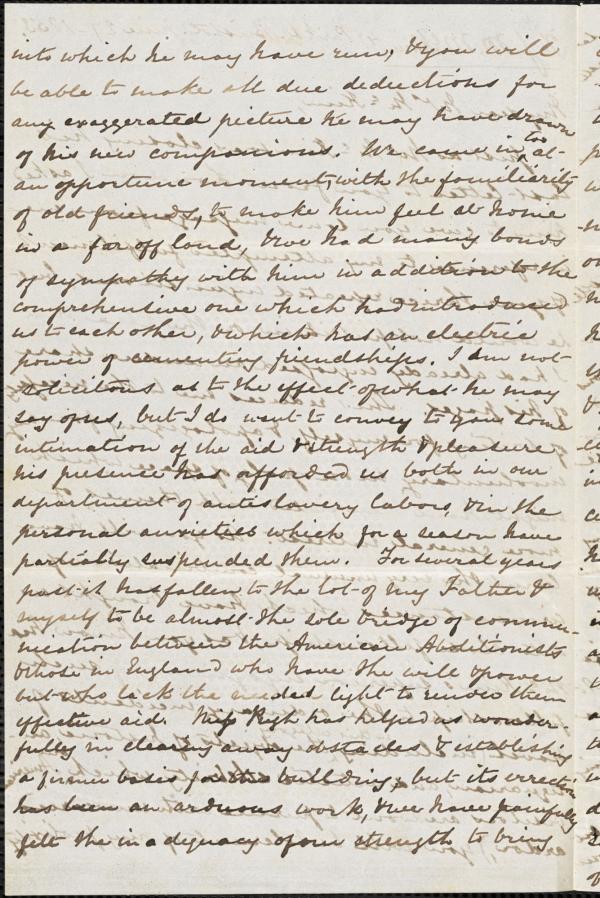 into which he may have run, & you will
be able to make all due deductions for
any exaggerated picture he may have drawn
of his new companions. We came in, too at
an opportune moment, with the familiarity
of old friends, to make him feel at home
in a far off land, & we had many bonds
of sympathy with him in addition to the
comprehensive one which had introduced
us to each other, & which has an electric
power of cementing friendships. I am not
solicitous as to the effect of what he may
say of us, but I do want to convey to you some
intimation of the aid & strength & pleasure
his presence has afforded us both in our
department of antislavery labors, & in the
personal anxieties which for a season have
partially suspended them. For several years
past it has fallen to the lot of my Father &
myself to be almost the sole bridge of commu-
nication between the American Abolitionists
& those in England who have the will & power
but who lack the needed light to render them
effective aid. Miss Pugh has helped us wonder-
fully in clearing away obstacles & establishing
a firmer basis for the building; but its erection
has been an arduous work, & we have painfully
felt the inadequacy of our strength to bring